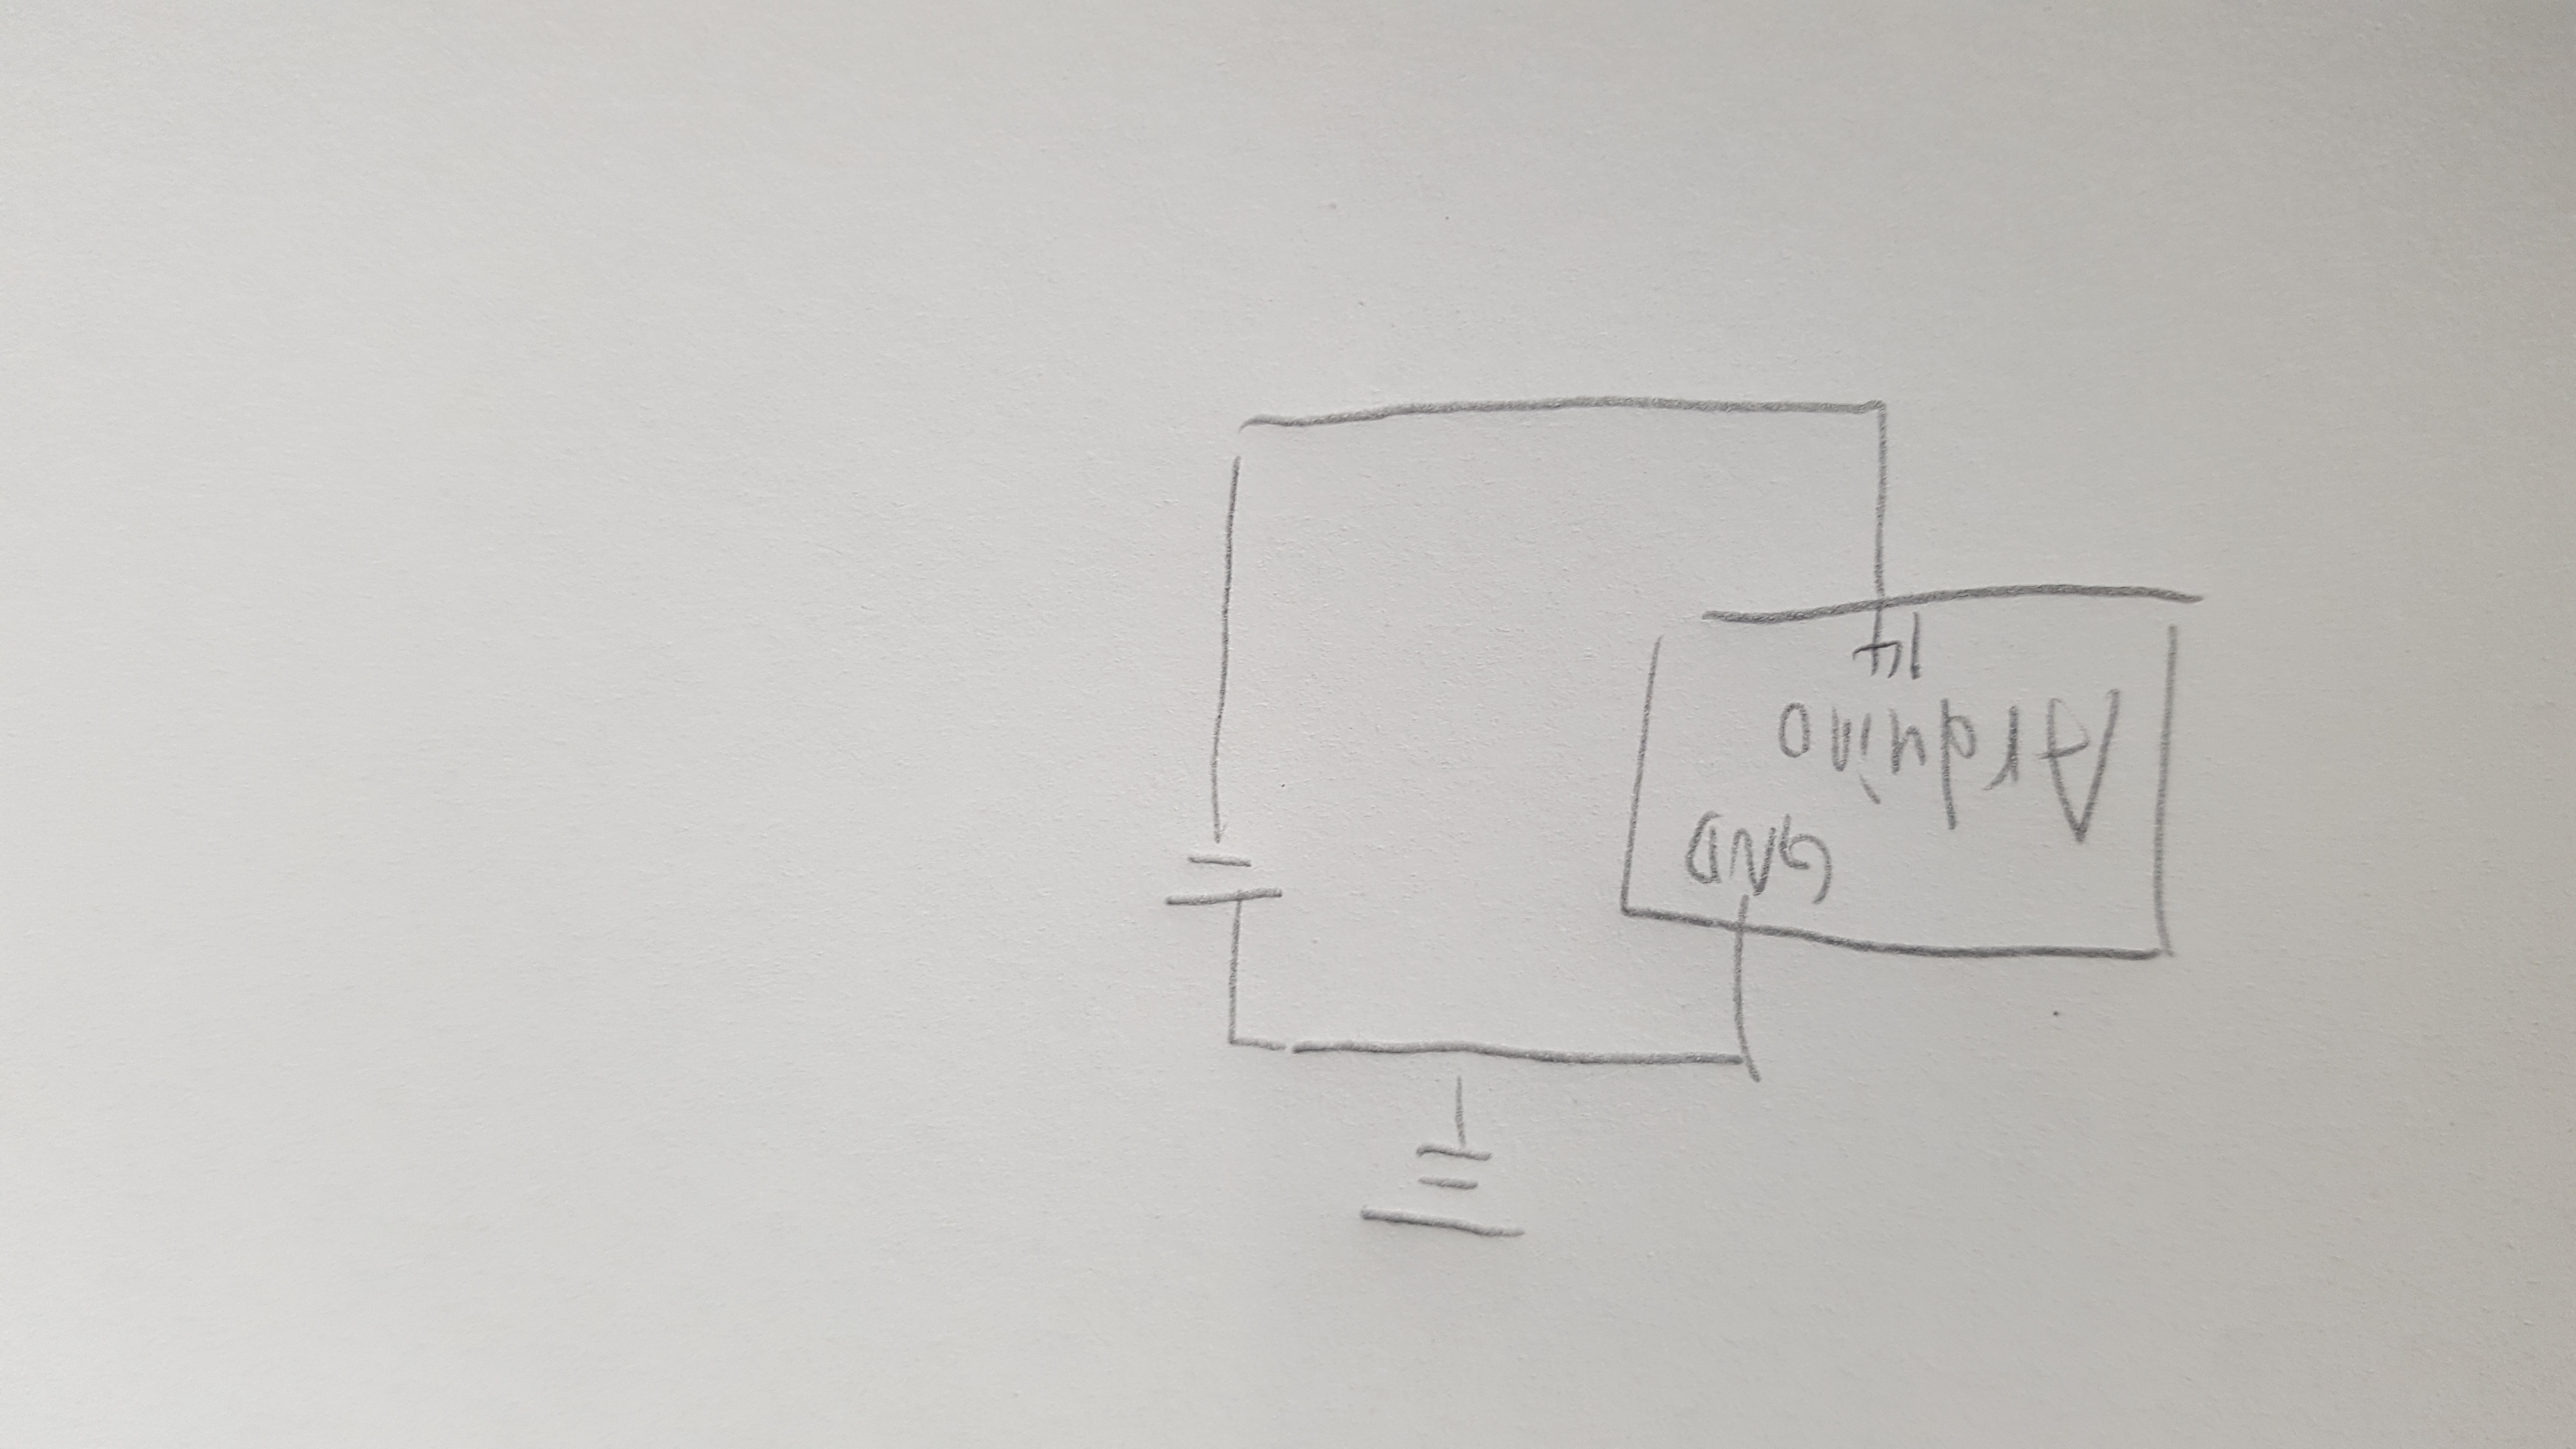 GND
Arduino
14